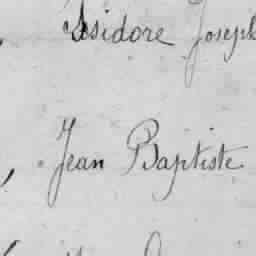 Isidore Joseph
, Jean Baptiste